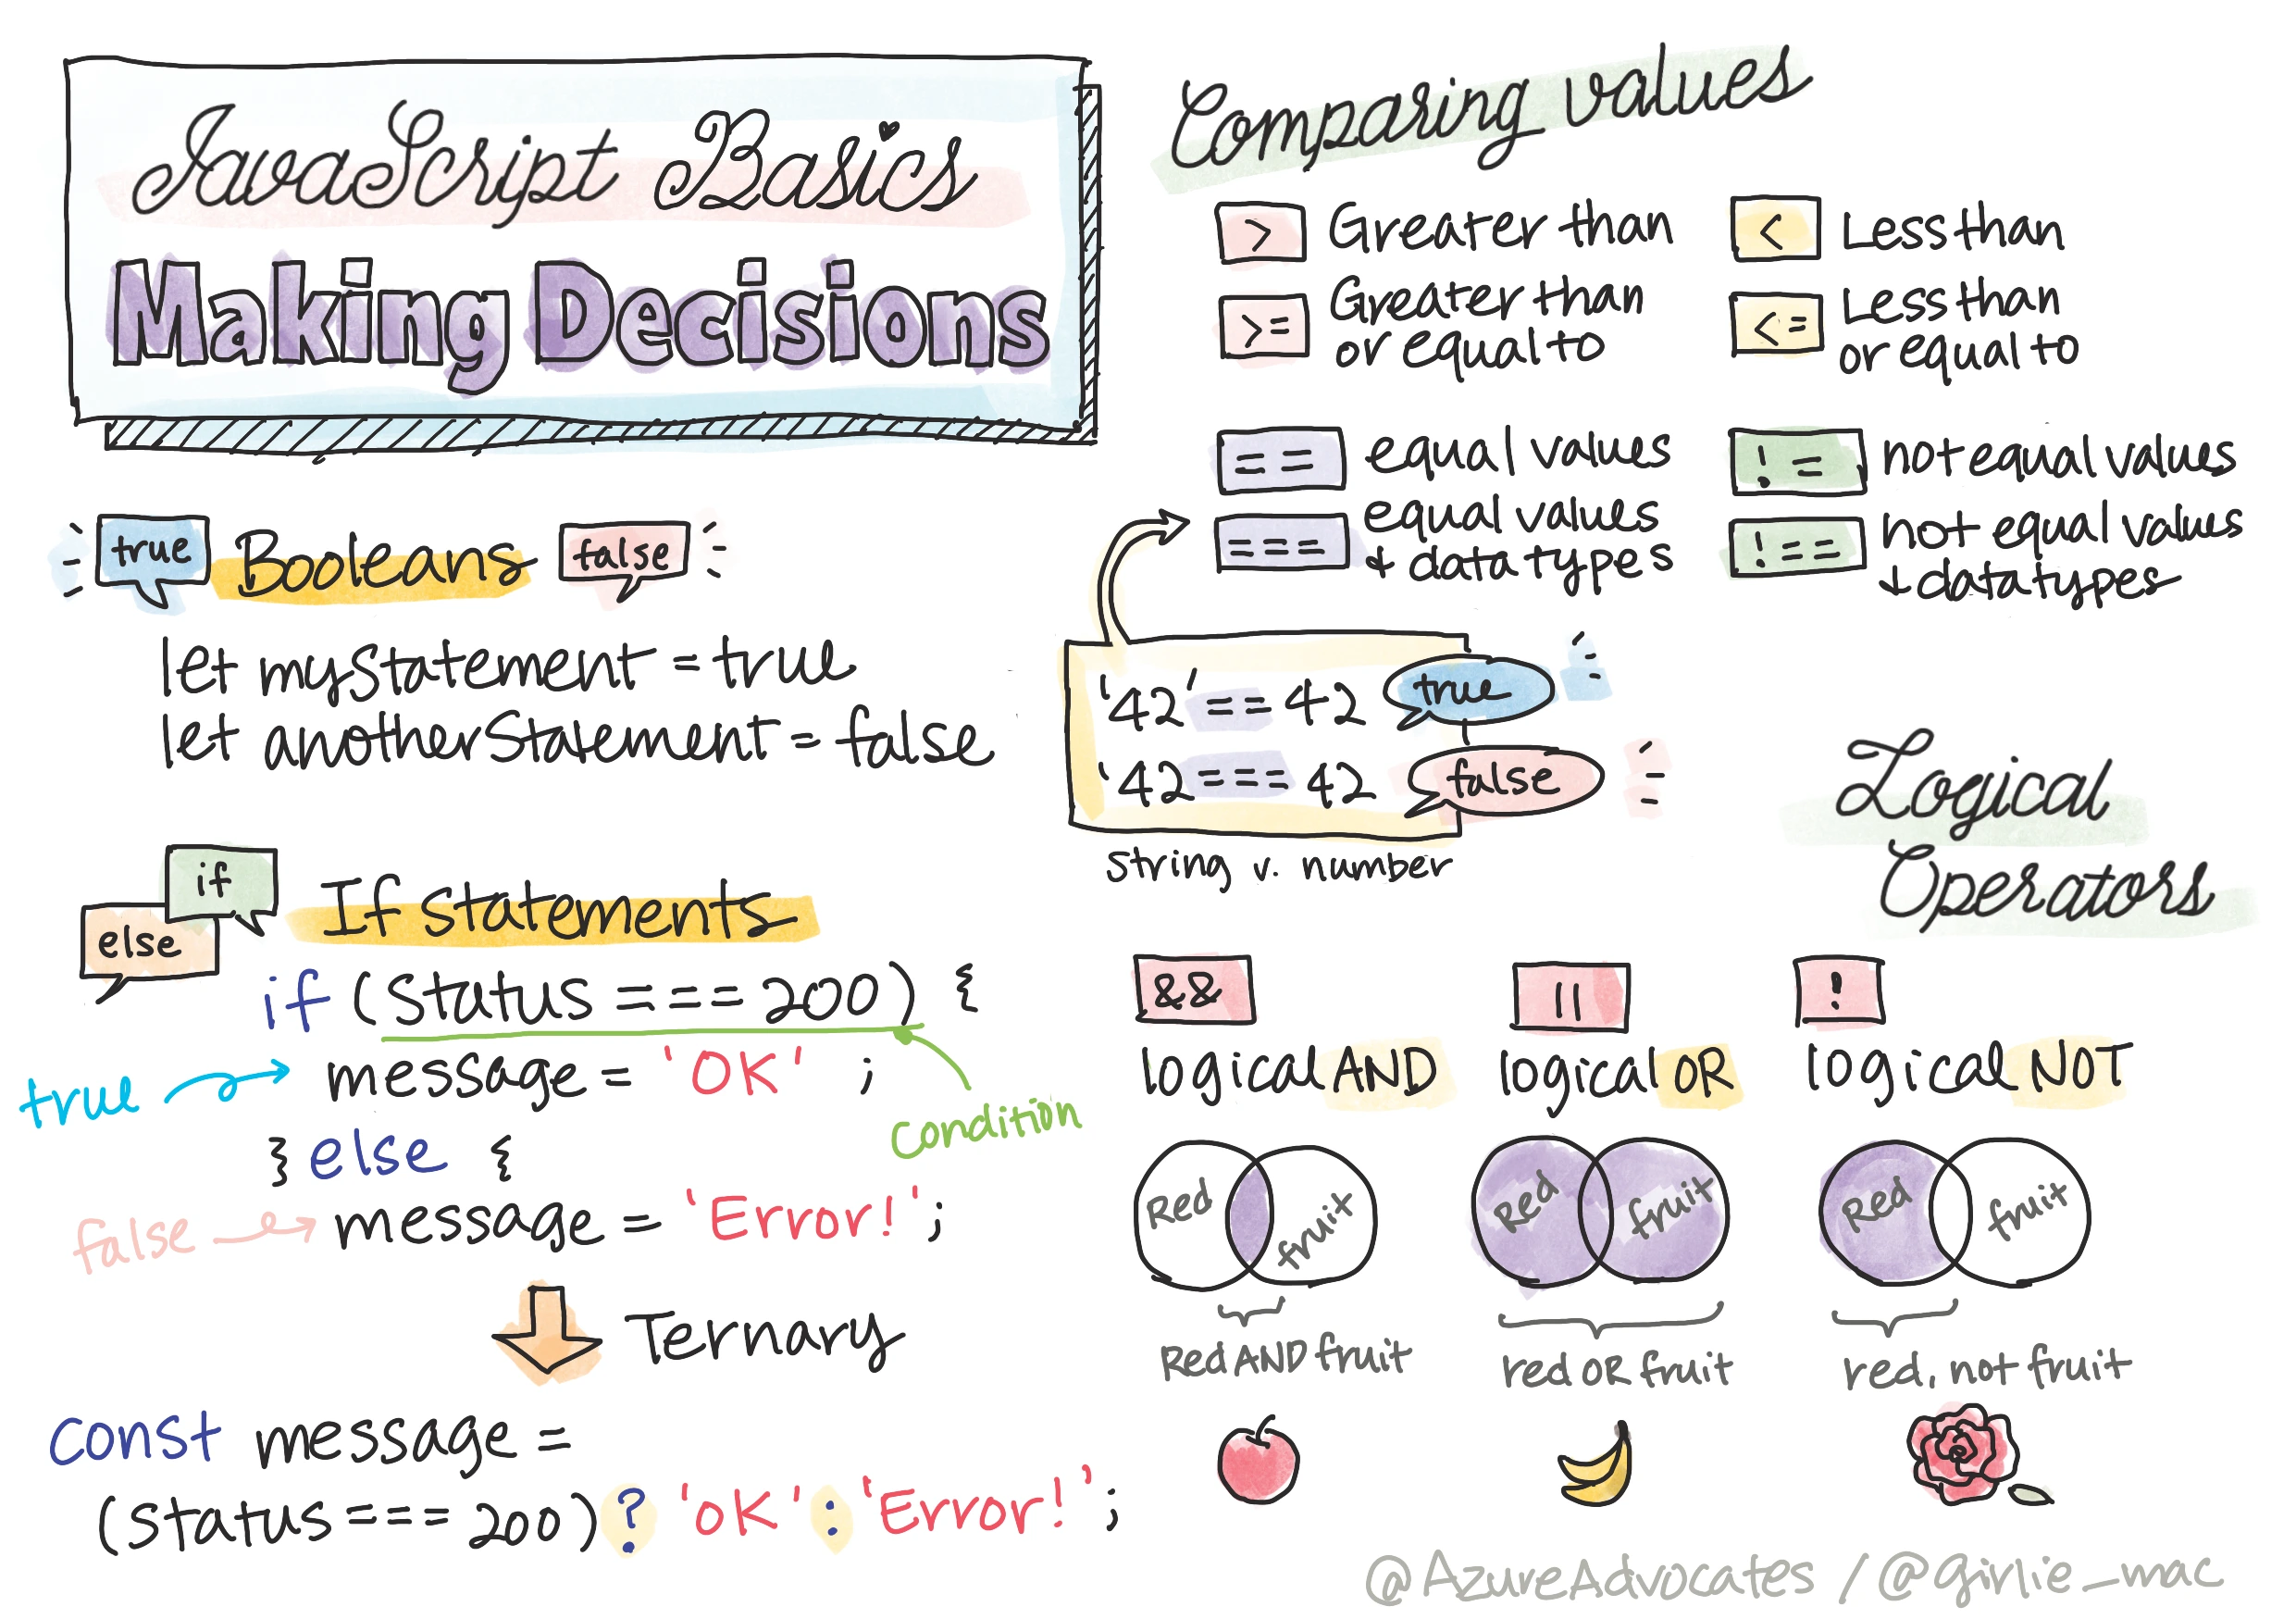 JavaScript Basics
Making Decisions
true
Booleans
false
let myStatement = true
let anotherStatement = false
if
else
If statements
if (status === 200) {
true
message = 'OK' ;
condition
} else {
false
message = 'Error!';
Ternary
const message =
(status === 200) ? 'OK' : 'Error!';
Comparing values
> Greater than
< Less than
>= Greater than
or equal to
<= Less than
or equal to
== equal values
!= not equal values
=== equal values
+ data types
!== not equal values
+ data types
'42' == 42 true
'42 === 42 false
string v. number
Logical
Operators
&&
logical AND
||
logical OR
!
logical NOT
Red
fruit
Red
fruit
Red
fruit
Red AND fruit
red OR fruit
red, not fruit
@AzureAdvocates / @girlie_mac